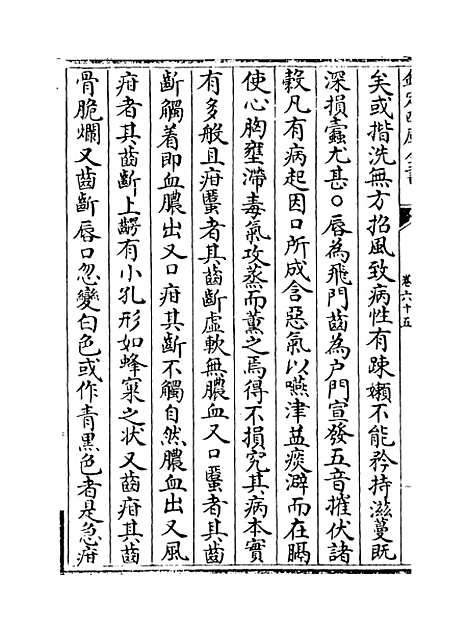 欽定四庫全書
卷六十五
矣或揩洗無方招風致病性有踈嬾不能矜持滋蔓既
深損蠹尤甚○唇為飛門齒為户門宣發五音摧伏諸
穀凡有病起因口所成含惡氣以嚥津益痰澼而在膈
使心胸壅滯毒氣攻蒸而薰之焉得不損究其病本實
有多般且疳䘌者其齒齗虚軟無膿血又口䘌者其齒
齗觸着即血膿出又口疳其齗不觸自然膿血出又風
疳者其齒齗上齶有小孔形如蜂窠之状又齒疳其齒
骨脆爛又齒齗唇口忽變白色或作青黑色者是急疳